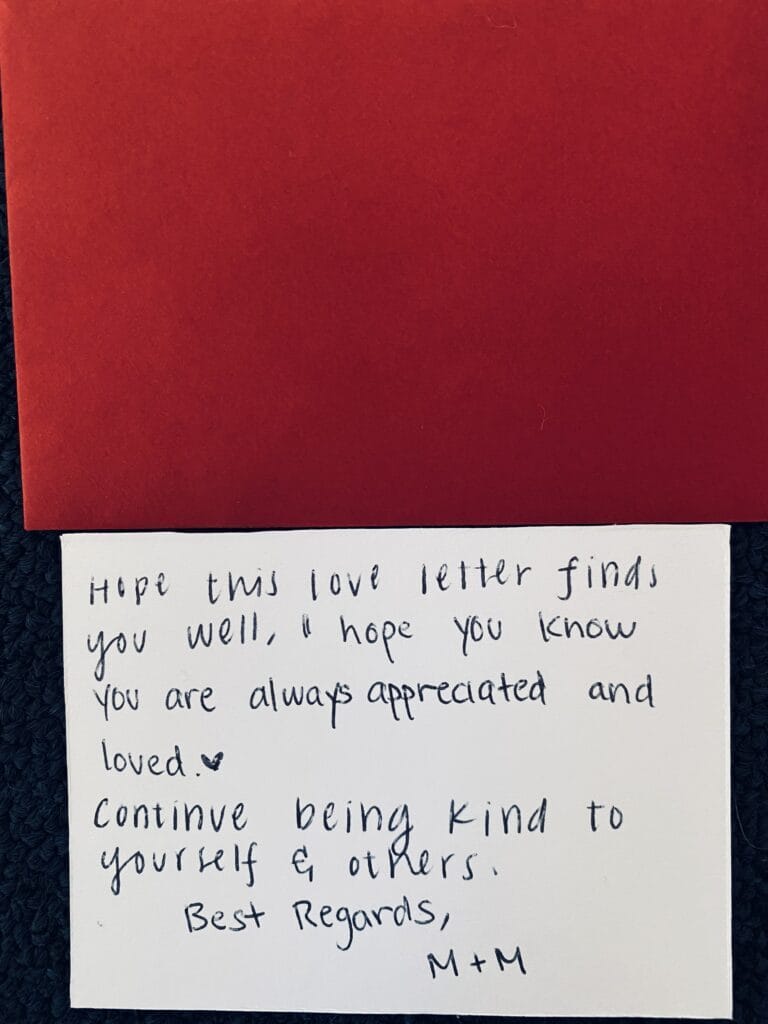 Hope this love letter finds
you well, I hope you know
you are always appreciated and
loved.♥
Continue being kind to
yourself & others.
Best Regards,
M + M